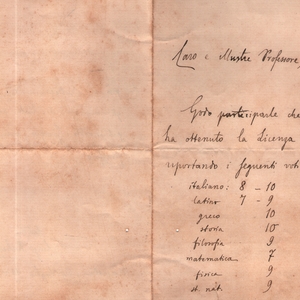 Caro e Illustre Professore,
Godo parteciparle che
ha ottenuto la Licenza
riportando i seguenti voti
italiano: 8 - 10
latino 7 - 9
greco 10
storia 10
filosofia 9
matematica 7
fisica 9
st. nat. 9